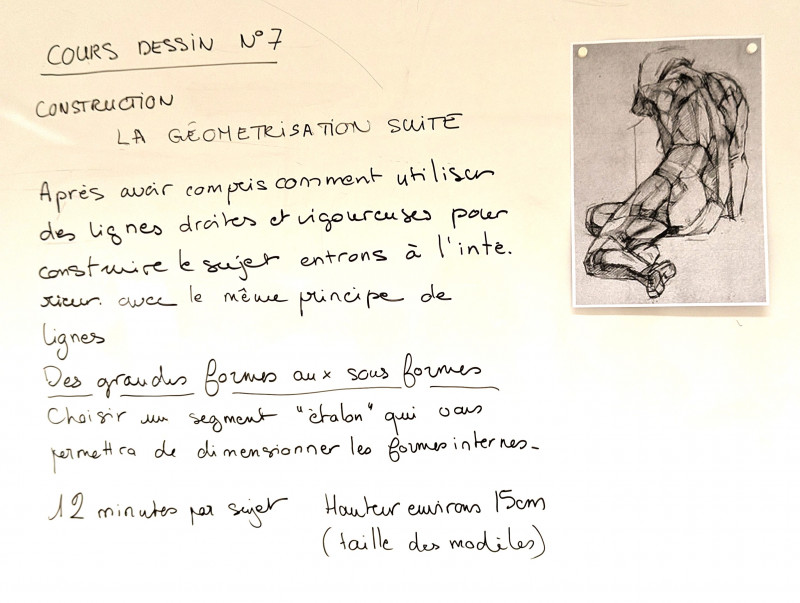 COURS DESSIN N°7
CONSTRUCTION
LA GÉOMETRISATION SUITE
Après avoir compris comment utiliser
des lignes droites et vigoureuses pour
construire le sujet entrons à l'inté.
rieur. avec le même principe de
lignes
Des grandes formes aux sous formes
Choisir un segment "étalon" qui vous
permettra de dimensionner les formes internes-
12 minutes par sujet Hauteur environs 15cm
(taille des modèles)